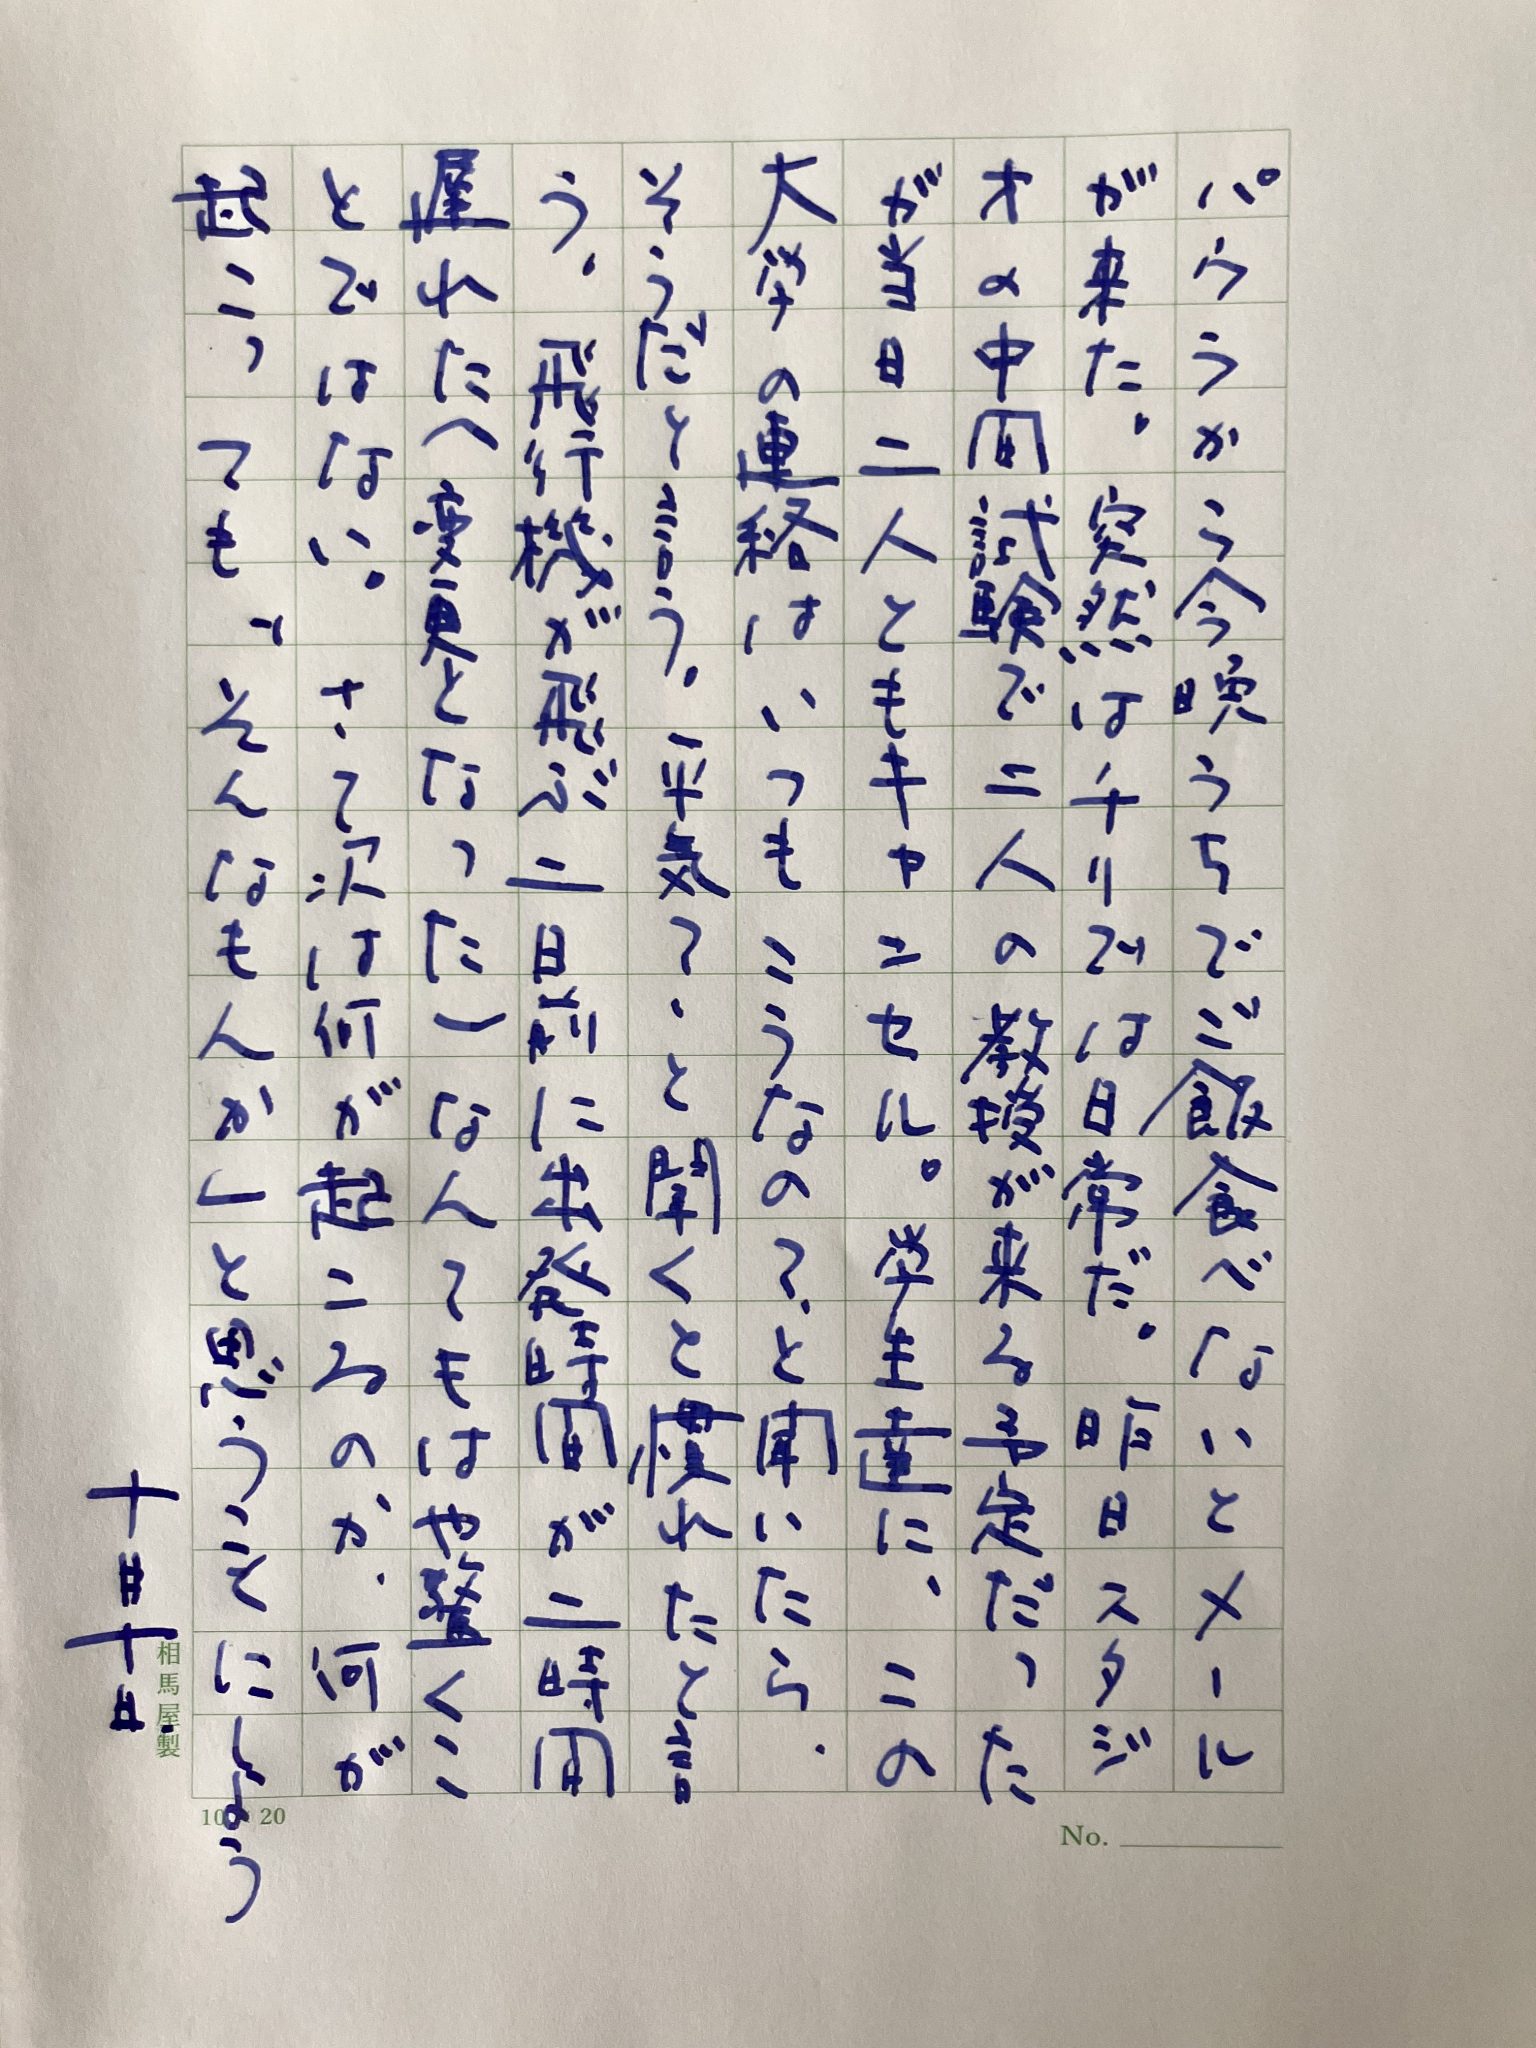 パウラから今晩うちでご飯食べないとメール
が来た。突然はチリでは日常だ。昨日スタジ
オの中間試験で二人の教授が来る予定だった
が当日二人ともキャンセル。学生達に、この
大学の連絡はいつもこうなの？と聞いたら、
そうだと言う。平気？と聞くと慣れたと言
う。飛行機が飛ぶ二日前に出発時間が二時間
遅れたへ変更となった一なんてもはや驚くこ
とではない。さて次は何が起こるのか、何が
起こっても、「そんなもんか」と思うことにしよう
十月十日
相馬屋製
10 20
No.